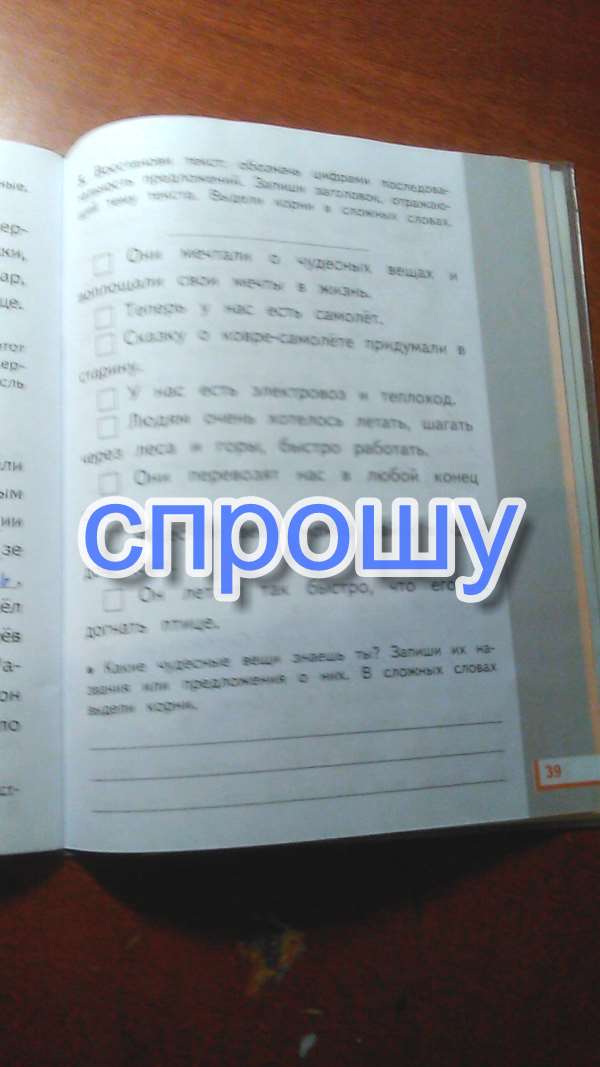 ные.
ер-
ки,
ар,
це.
тот
ер-
сль
ли
ым
ии
зе
ёл
ёв
а-
он
ло
ст-
5. Восстанови текст: обозначь цифрами последова-
тельность предложений. Запиши заголовок, отражаю-
щий тему текста. Выдели корни в сложных словах.
Они мечтали о чудесных вещах и
воплощали свои мечты в жизнь.
Теперь у нас есть самолёт.
Сказку о ковре-самолёте придумали в
старину.
У нас есть электровоз и теплоход.
Людям очень хотелось летать, шагать
через леса и горы, быстро работать.
Они перевозят нас в любой конец
спрошу
Он так быстро, что его
догнать птице.
Какие чудесные вещи знаешь ты? Запиши их на-
звания или предложения о них. В сложных словах
выдели корни.
39